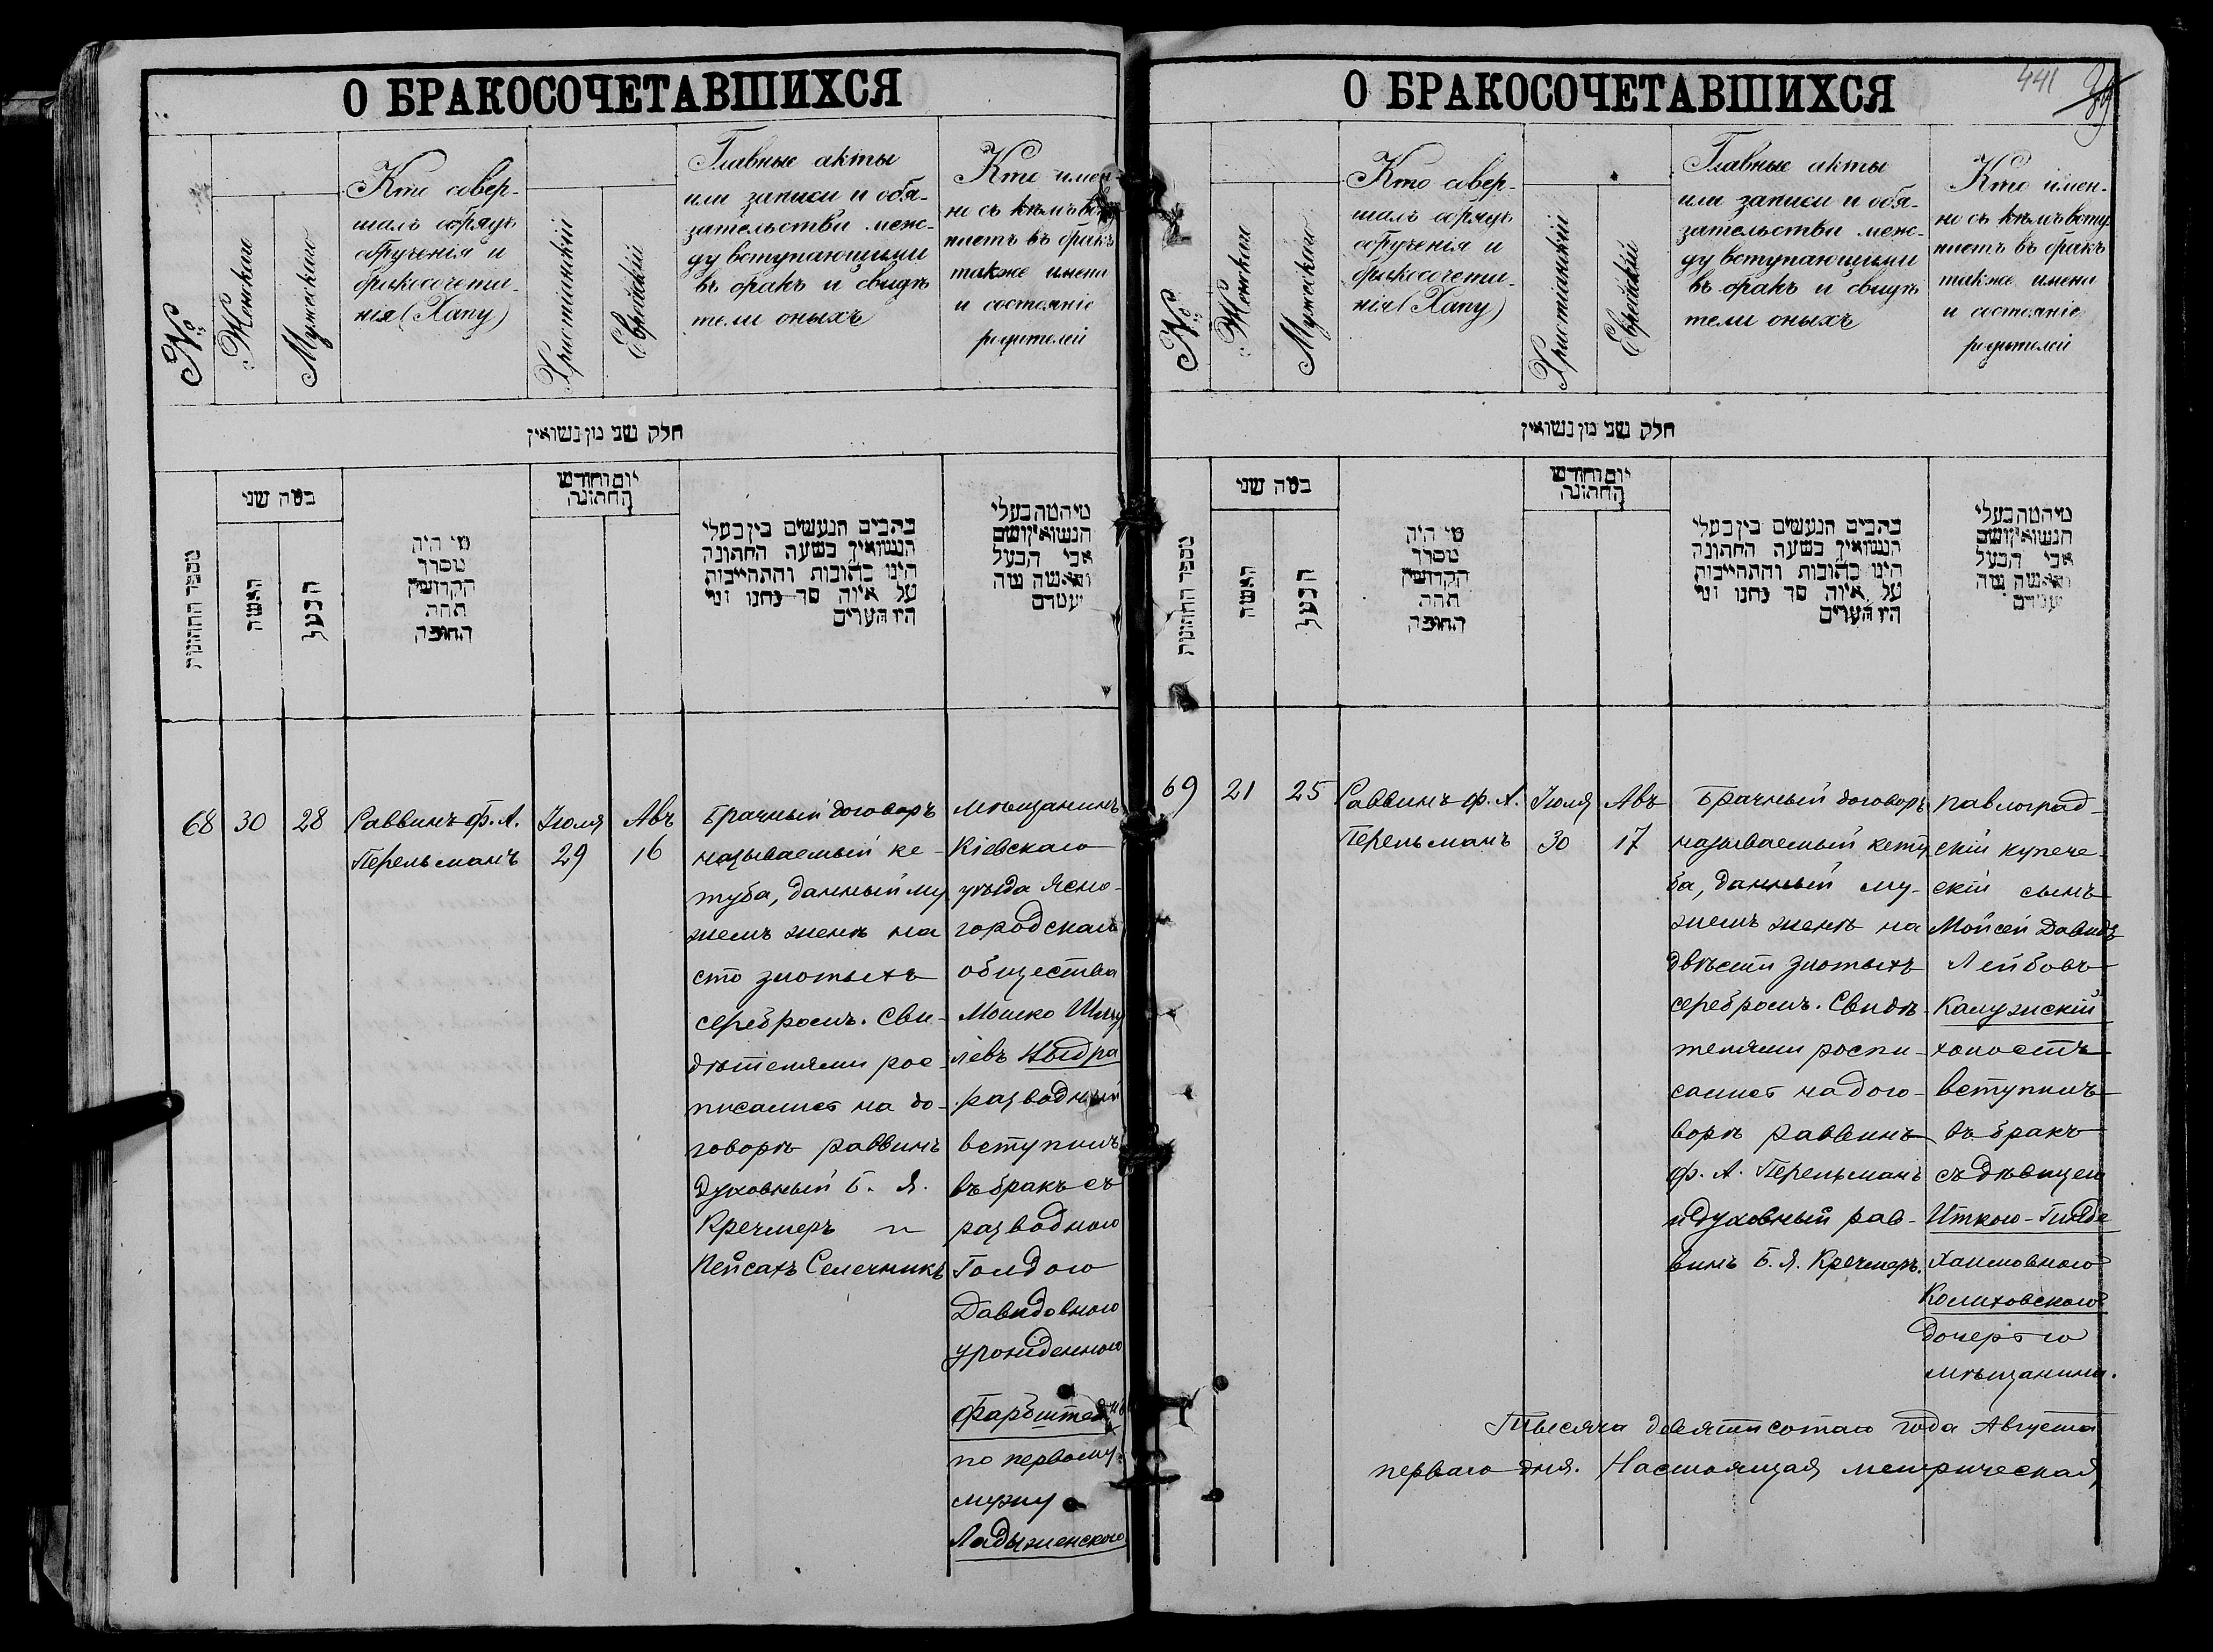 О БРАКОСОЧЕТАВШИХСЯ
№
Женская
Мужеская
Кто совер-
шалъ обрядъ
обрученія и
бракосочета-
нія (Хапу)
Христіанскій
Еврейскій
Главные акты
или записи и обя-
зательства меж-
ду вступающими
въ бракъ и свидѣ
тели оныхъ
Кто имен-
но съ кѣмъ всту
паетъ въ бракъ
также имена
и состояніе
родителей
חלק שני מן נשואין
מספר החתונות
כמה שני
האשה
הבעל
מי היה
מסדר
הקדושין
תחת
החופה
יום וחודש
החתונה
כתבים הנעשים בין בעלי
הנשואין בשעה החתונה
הינו כתובות והתחייבות
על איזה סך נתנו ומי
היו העדים
מי המה בעלי
הנשואין ושם
אבי הבעל
והאשה ומה
68
30
28
Раввинъ Ф. А.
Перельманъ
Іюля
29
Авъ
16
Брачный договоръ
называемый ке-
туба, данный му
жемъ женѣ на
сто злотыхъ
серебромъ. Сви-
дѣтелями рос-
писались на до-
говорѣ раввинъ
духовный Б. Я.
Кречмеръ и
Пейсахъ Селечникъ
мѣщанинъ
Кіевскаго
уѣзда Ясно-
городскаго
общества
Мошко Шму
левъ Ныдра
разводный
вступилъ
въ бракъ съ
разводною
Голдою
Давидовною
урожденною
Фарбштейнъ
по первому
мужу
Ладыженскою
О БРАКОСОЧЕТАВШИХСЯ
441
№
Женская
Мужеская
Кто совер-
шалъ обрядъ
обрученія и
бракосочета-
нія (Хапу)
Христіанскій
Еврейскій
Главные акты
или записи и обя-
зательства меж-
ду вступающими
въ бракъ и свидѣ
тели оныхъ
Кто имен-
но съ кѣмъ всту
паетъ въ бракъ
также имена
и состояніе
родителей
חלק שני מן נשואין
מספר החתונות
כמה שני
האשה
הבעל
מי היה
מסדר
הקדושין
תחת
החופה
יום וחודש
החתונה
כתבים הנעשים בין בעלי
הנשואין בשעה החתונה
הינו כתובות והתחייבות
על איזה סך נתנו ומי
היו העדים
מי המה בעלי
הנשואין ושם
אבי הבעל
והאשה ומה
69
21
25
Раввинъ Ф. А.
Перельманъ
Іюля
30
Авъ
17
Брачный договоръ
называемый кету
ба, данный му-
жемъ женѣ на
двѣсти злотыхъ
серебромъ. Свидѣ-
телями роспи-
сались на дого-
ворѣ раввинъ
Ф. А. Перельманъ
и духовный рав-
винъ Б. Я. Кречмеръ.
павлоград-
скій купече-
скій сынъ
Мойсей Давидъ
Лейбовъ
Калужскій
холостъ
вступилъ
въ бракъ
съ дѣвицею
Иткою-Гинде
Хаимовною
Комиховскою
дочерью
мѣщанина.
Тысяча девятисотаго года Августа
перваго дня. Настоящая метрическая